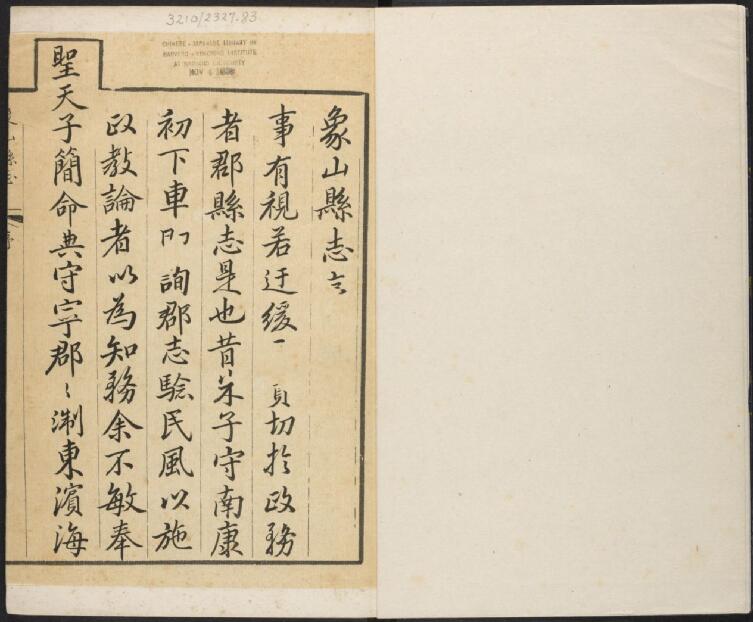 3210/2327.83
CHINESE - JAPANESE LIBRARY OF
HARVARD - YENCHING INSTITUTE
AT HARVARD UNIVERSITY
NOV
象山縣志
事有視若迂緩 切於政務
者郡縣志是也昔朱子守南康
初下車 詢郡志驗民風以施
政教論者以為知務余不敏奉
聖天子簡命典守寧郡〻淛東濱海